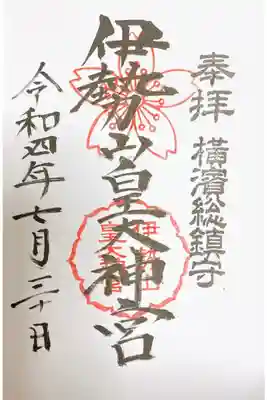 奉拝 横濱総鎮守
伊勢山皇大神宮
令和四年七月三十日